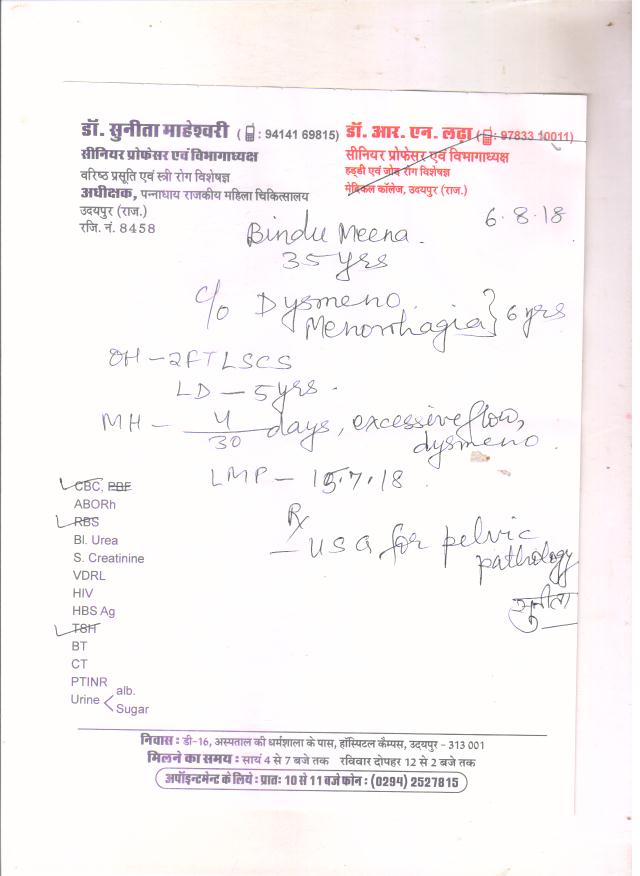 डॉ. सुनीता माहेश्वरी ( : 94141 69815)
सीनियर प्रोफेसर एवं विभागाध्यक्ष
वरिष्ठ प्रसूति एवं स्त्री रोग विशेषज्ञ
अधीक्षक, पन्नाधाय राजकीय महिला चिकित्सालय
उदयपुर (राज.)
रजि. नं. 8458
डॉ. आर. एन. लढ़ा ( : 97833 10011)
सीनियर प्रोफेसर एवं विभागाध्यक्ष
हड्डी एवं जोड़ रोग विशेषज्ञ
मेडिकल कॉलेज, उदयपुर (राज.)
6.8.18
Bindu Meena.
35 yrs
c/o Dysmeno
Menorrhagia } 6 yrs
OH - 2FTLSCS
LD - 5 yrs.
MH - 4/30 days, excessive flow,
dysmeno.
LMP - 15.7.18
Rx
- USG for pelvic
pathology
सुनीता
CBC, PBF
ABORh
RBS
Bl. Urea
S. Creatinine
VDRL
HIV
HBS Ag
TSH
BT
CT
PTINR
Urine < alb.
Sugar
निवास : डी-16, अस्पताल की धर्मशाला के पास, हॉस्पिटल कैम्पस, उदयपुर - 313 001
मिलने का समय : सायं 4 से 7 बजे तक रविवार दोपहर 12 से 2 बजे तक
अपॉइन्टमेन्ट के लिये : प्रातः 10 से 11 बजे फोन : (0294) 2527815